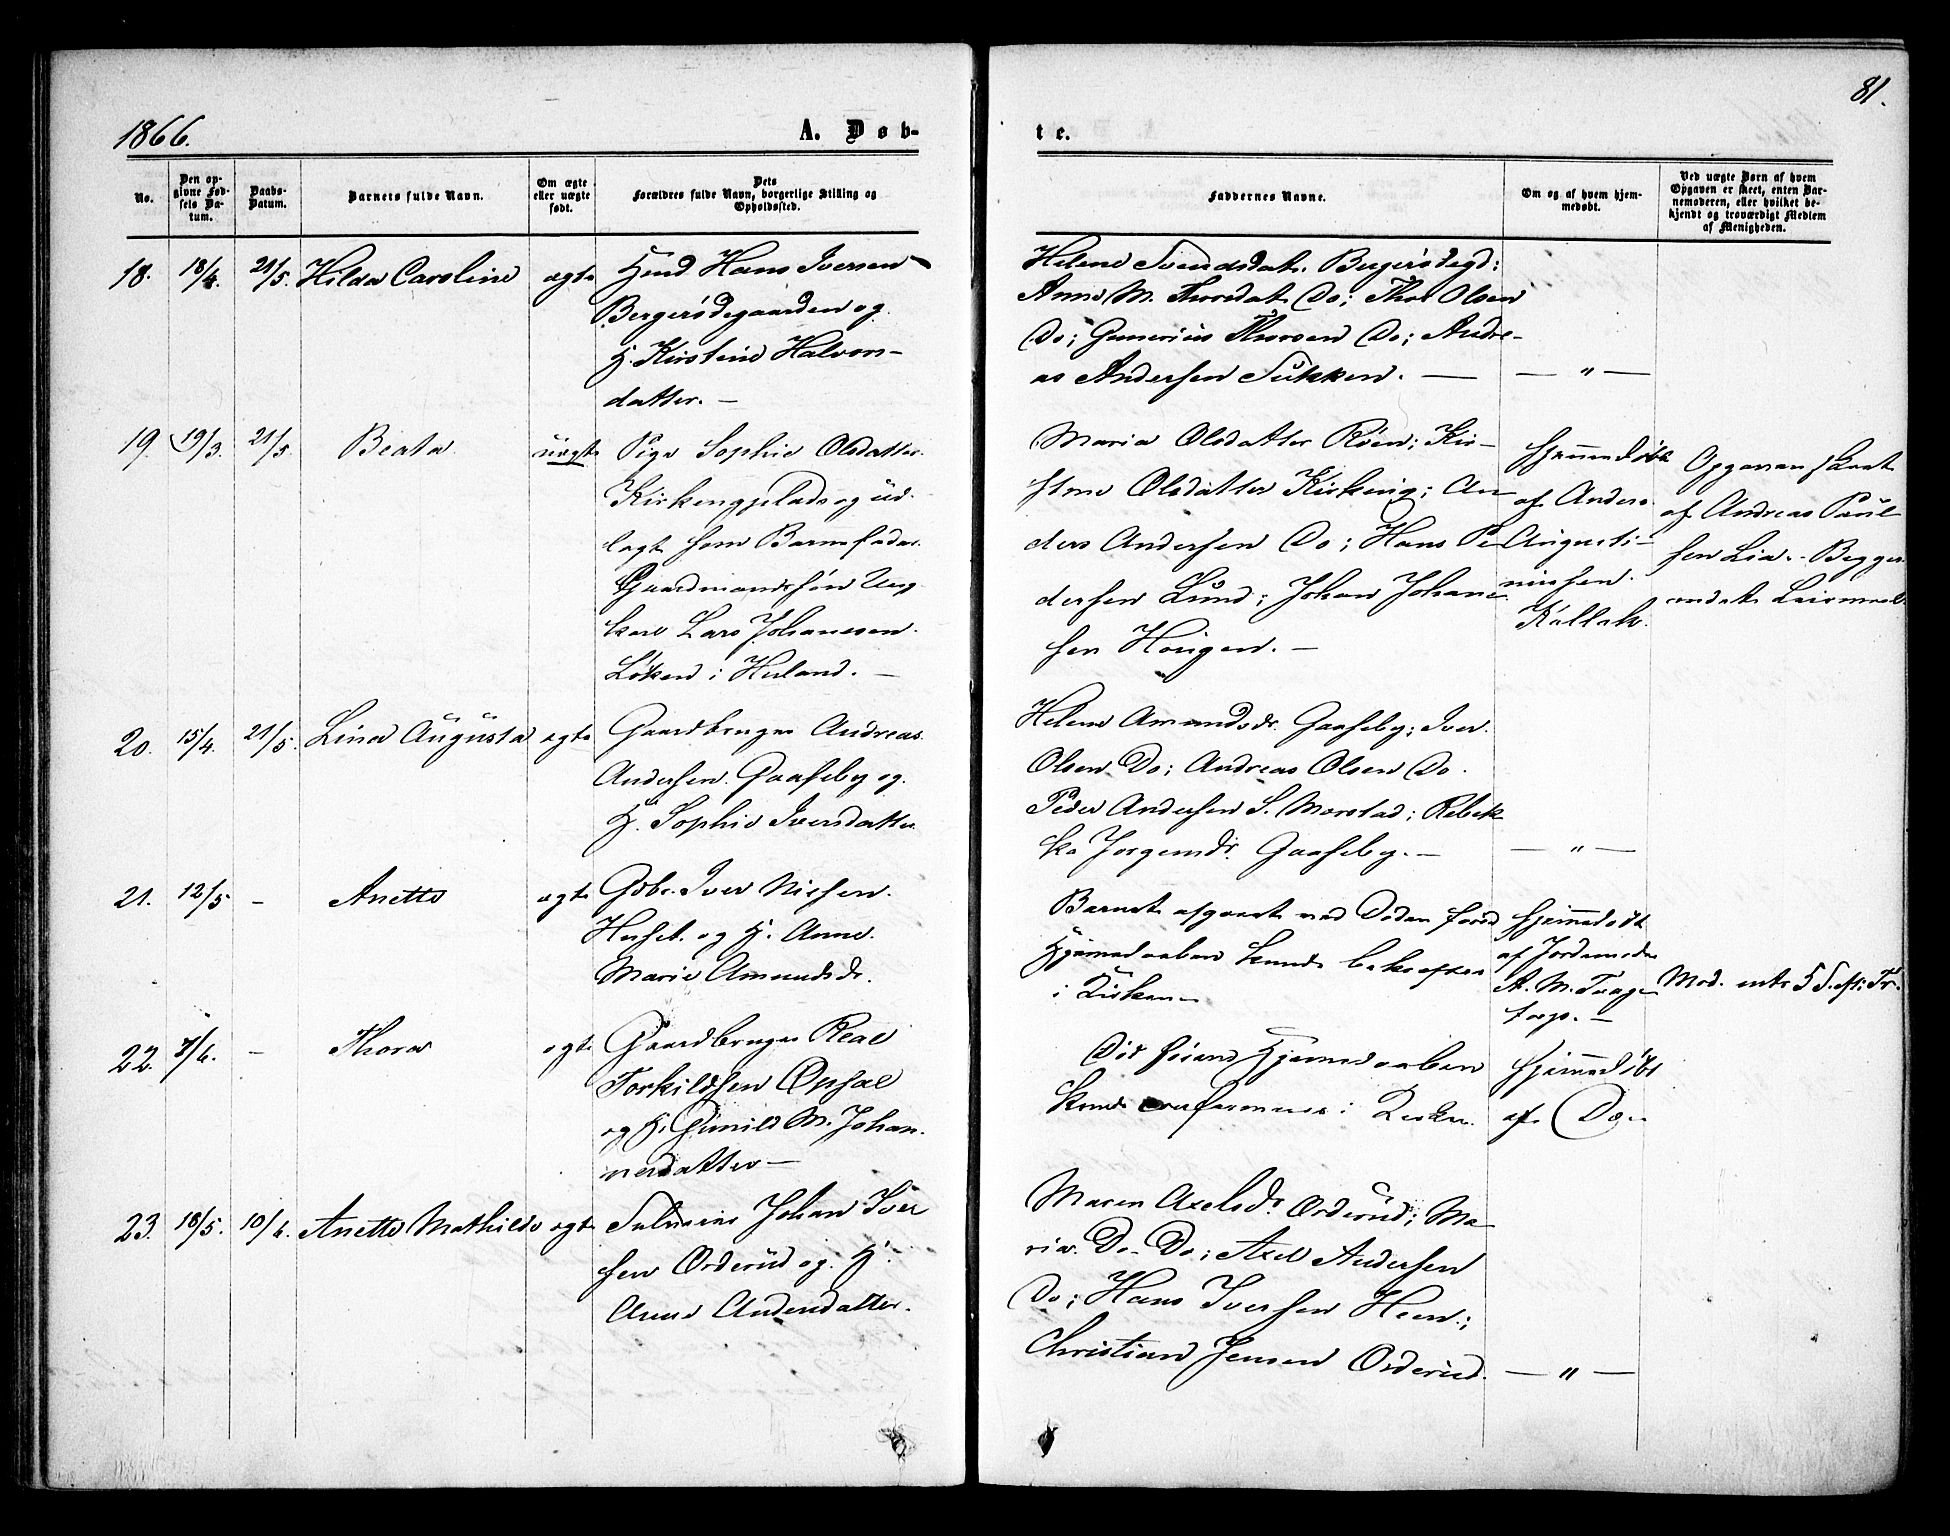 81.
1866.
A. Døb-
te.
No.
Den op-
givne Fød-
sels Da-
tum.
Daabs-
Datum.
Barnets fulde Navn.
Om ægte
eller uægte
født.
Dets
Forældres fulde Navn, borgerlige Stilling og
Opholdssted.
Faddernes Navne.
Om og af hvem hjem-
medøbt.
Ved uægte Børn af hvem
Opgaven er skeet, enten Bar-
nemoderen, eller hvilket be-
kjendt og troværdigt Medlem
af Menigheden.
18. 18/4. 21/5. Hilda Caroline ægte
Hans Iversen
Bergersødegaarden og
H. Kirstine Halvors-
datter. —
Helene Svendsdat.
Anne M. Thorsdat. Do; Thor Olsen
Do; Gunerius Thorsen Do; Andre-
as Andersen Sukken. — — " —
19. 19/3. 21/5. Beata. uægte
Pige Sophie Olsdatter
og ud-
lagt som Barnefader
Gaardmandssøn Ung-
karl Lars Johanesen
Løken i Høland. —
Maria Olsdatter Røen; Kir-
stine Olsdatter Kirkeng; An-
ders Andersen Do; Hans Pe-
dersen Lund; Johan Johane-
sen Hougen. —
Hjemmedøbt
af Anders
Augusti-
nussen
Kallak.
Opgaven skeet
af Andreas Paul-
sen Lia.
20. 15/4. 21/5. Lina Augusta ægte
Gaardbruger Andreas
Andersen Gaaseby og
H. Sophie Iversdatter
Helene Amundsdr. Gaaseby; Iver
Olsen Do; Andreas Olsen Do.
Peder Andersen S. Morstad; Rebek-
ka Jørgensdr. Gaaseby. — — " —
21. 12/5 — Anette ægte
Gdbr. Iver Nilsen
og H. Anne
Marie Amundsdr.
Barnet afgaaet ved Døden førend
Hjemmedaaben kunde bekræftes
i Kirken —
Hjemmedøbt
af Jordemoder
A. M.
torp. —
22. 7/6. — Thora ægte
Gaardbruger
Torkildsen Opsal
og H. Gunild M. Johan-
nesdatter —
Død førend Hjemmedaaben
kunde i Kirken.
Hjemmedøbt
af Do —
23. 18/5. 10/6. Anette Mathilde ægte
Johan Iver
sen Orderud og H.
Anne Andersdatter.
Maren Axelsdr. Orderud; Ma-
ria Do Do; Axel Andersen
Do; Hans Iversen Heen;
Christian Jensen Orderud. — " —